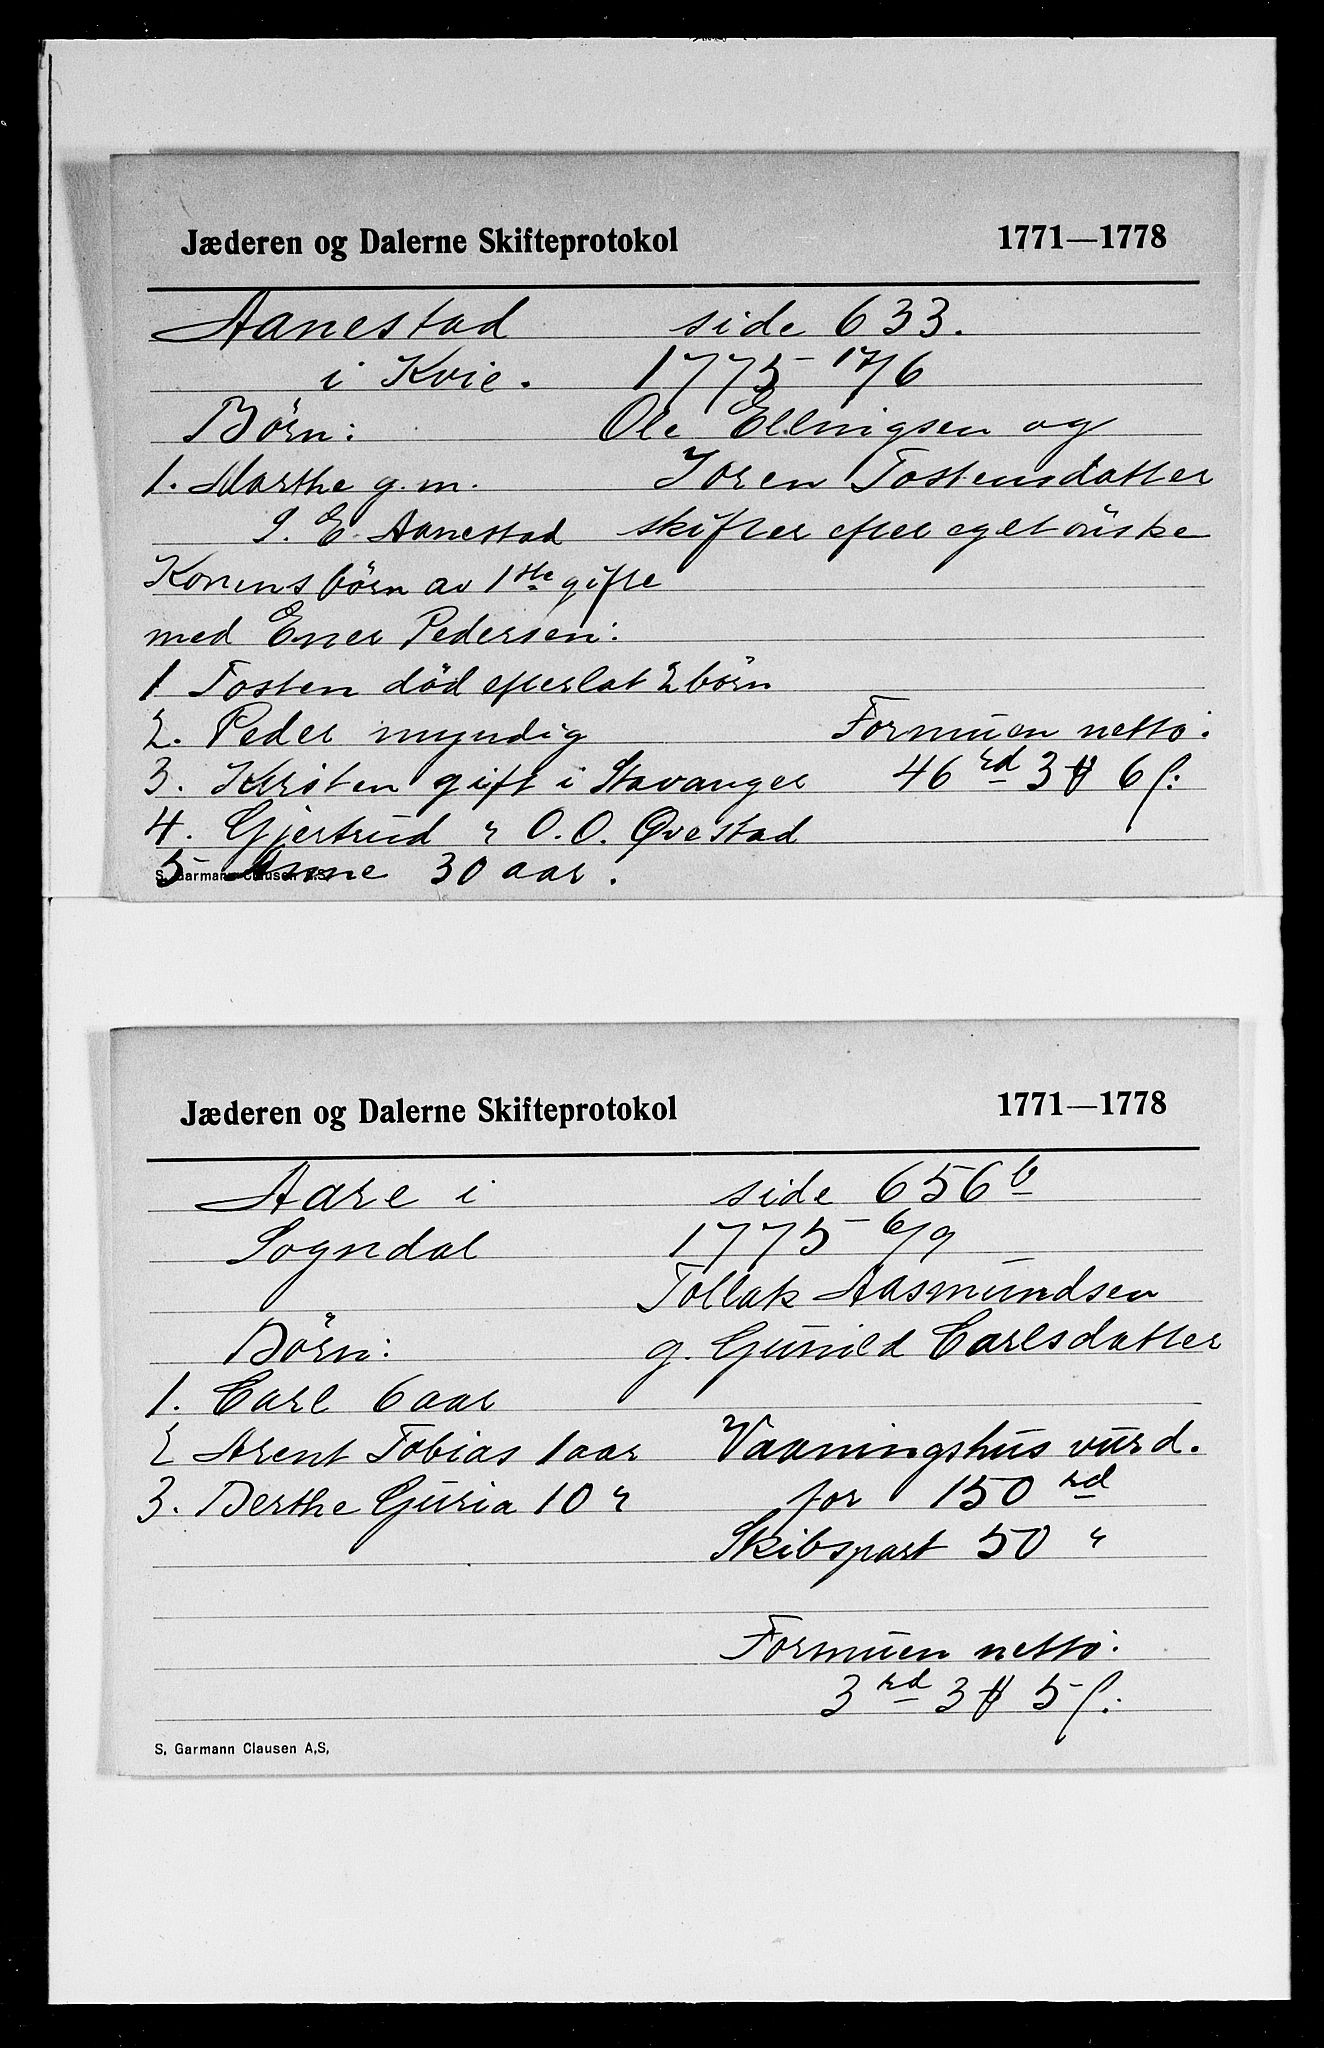 Jæderen og Dalerne Skifteprotokol 1771—1778
Aanestad side 633.
i Kvie. 1775 17/6
Børn: Ole Ellingsen og
1. Marthe g. m. Joren Tostensdatter
S. E. Aanestad skifter efter eget önske
Konens børn av 1ste gifte
med Ener Pedersen:
1 Tosten död efterlot 2 börn
2. Peder myndig Formuen netto:
3. Kirsten gift i Stavanger 46 rd 3 ℔ 6 ſ:
4. Gjertrud " O. O. Øvestad
5 Anne 30 aar.
S. Garmann Clausen A.S.
Jæderen og Dalerne Skifteprotokol 1771—1778
Aare i side 656 b
Sogndal 1775 6/9
Tollak Aasmundsen
Børn: g. Gunild Carlsdatter
1. Carl 6 aar
2 Arent Tobias 1 aar Vaaningshus vurd.
3. Berthe Guria 10 " for 150 rd
Skibspart 50 "
Formuen netto:
3 rd 3 ℔ 5 ſ:
S. Garmann Clausen A.S.